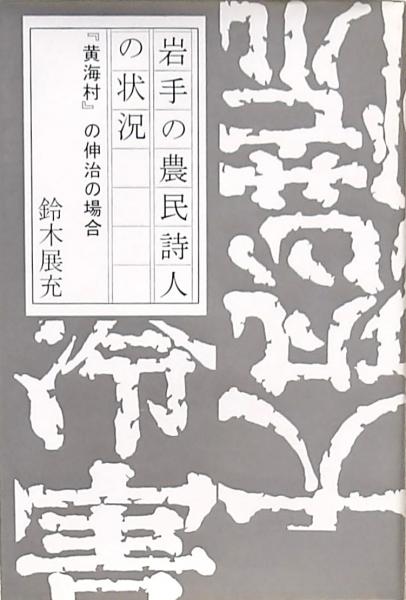 岩手の農民詩人
の状況
『黄海村』の伸治の場合
鈴木展充
冷害